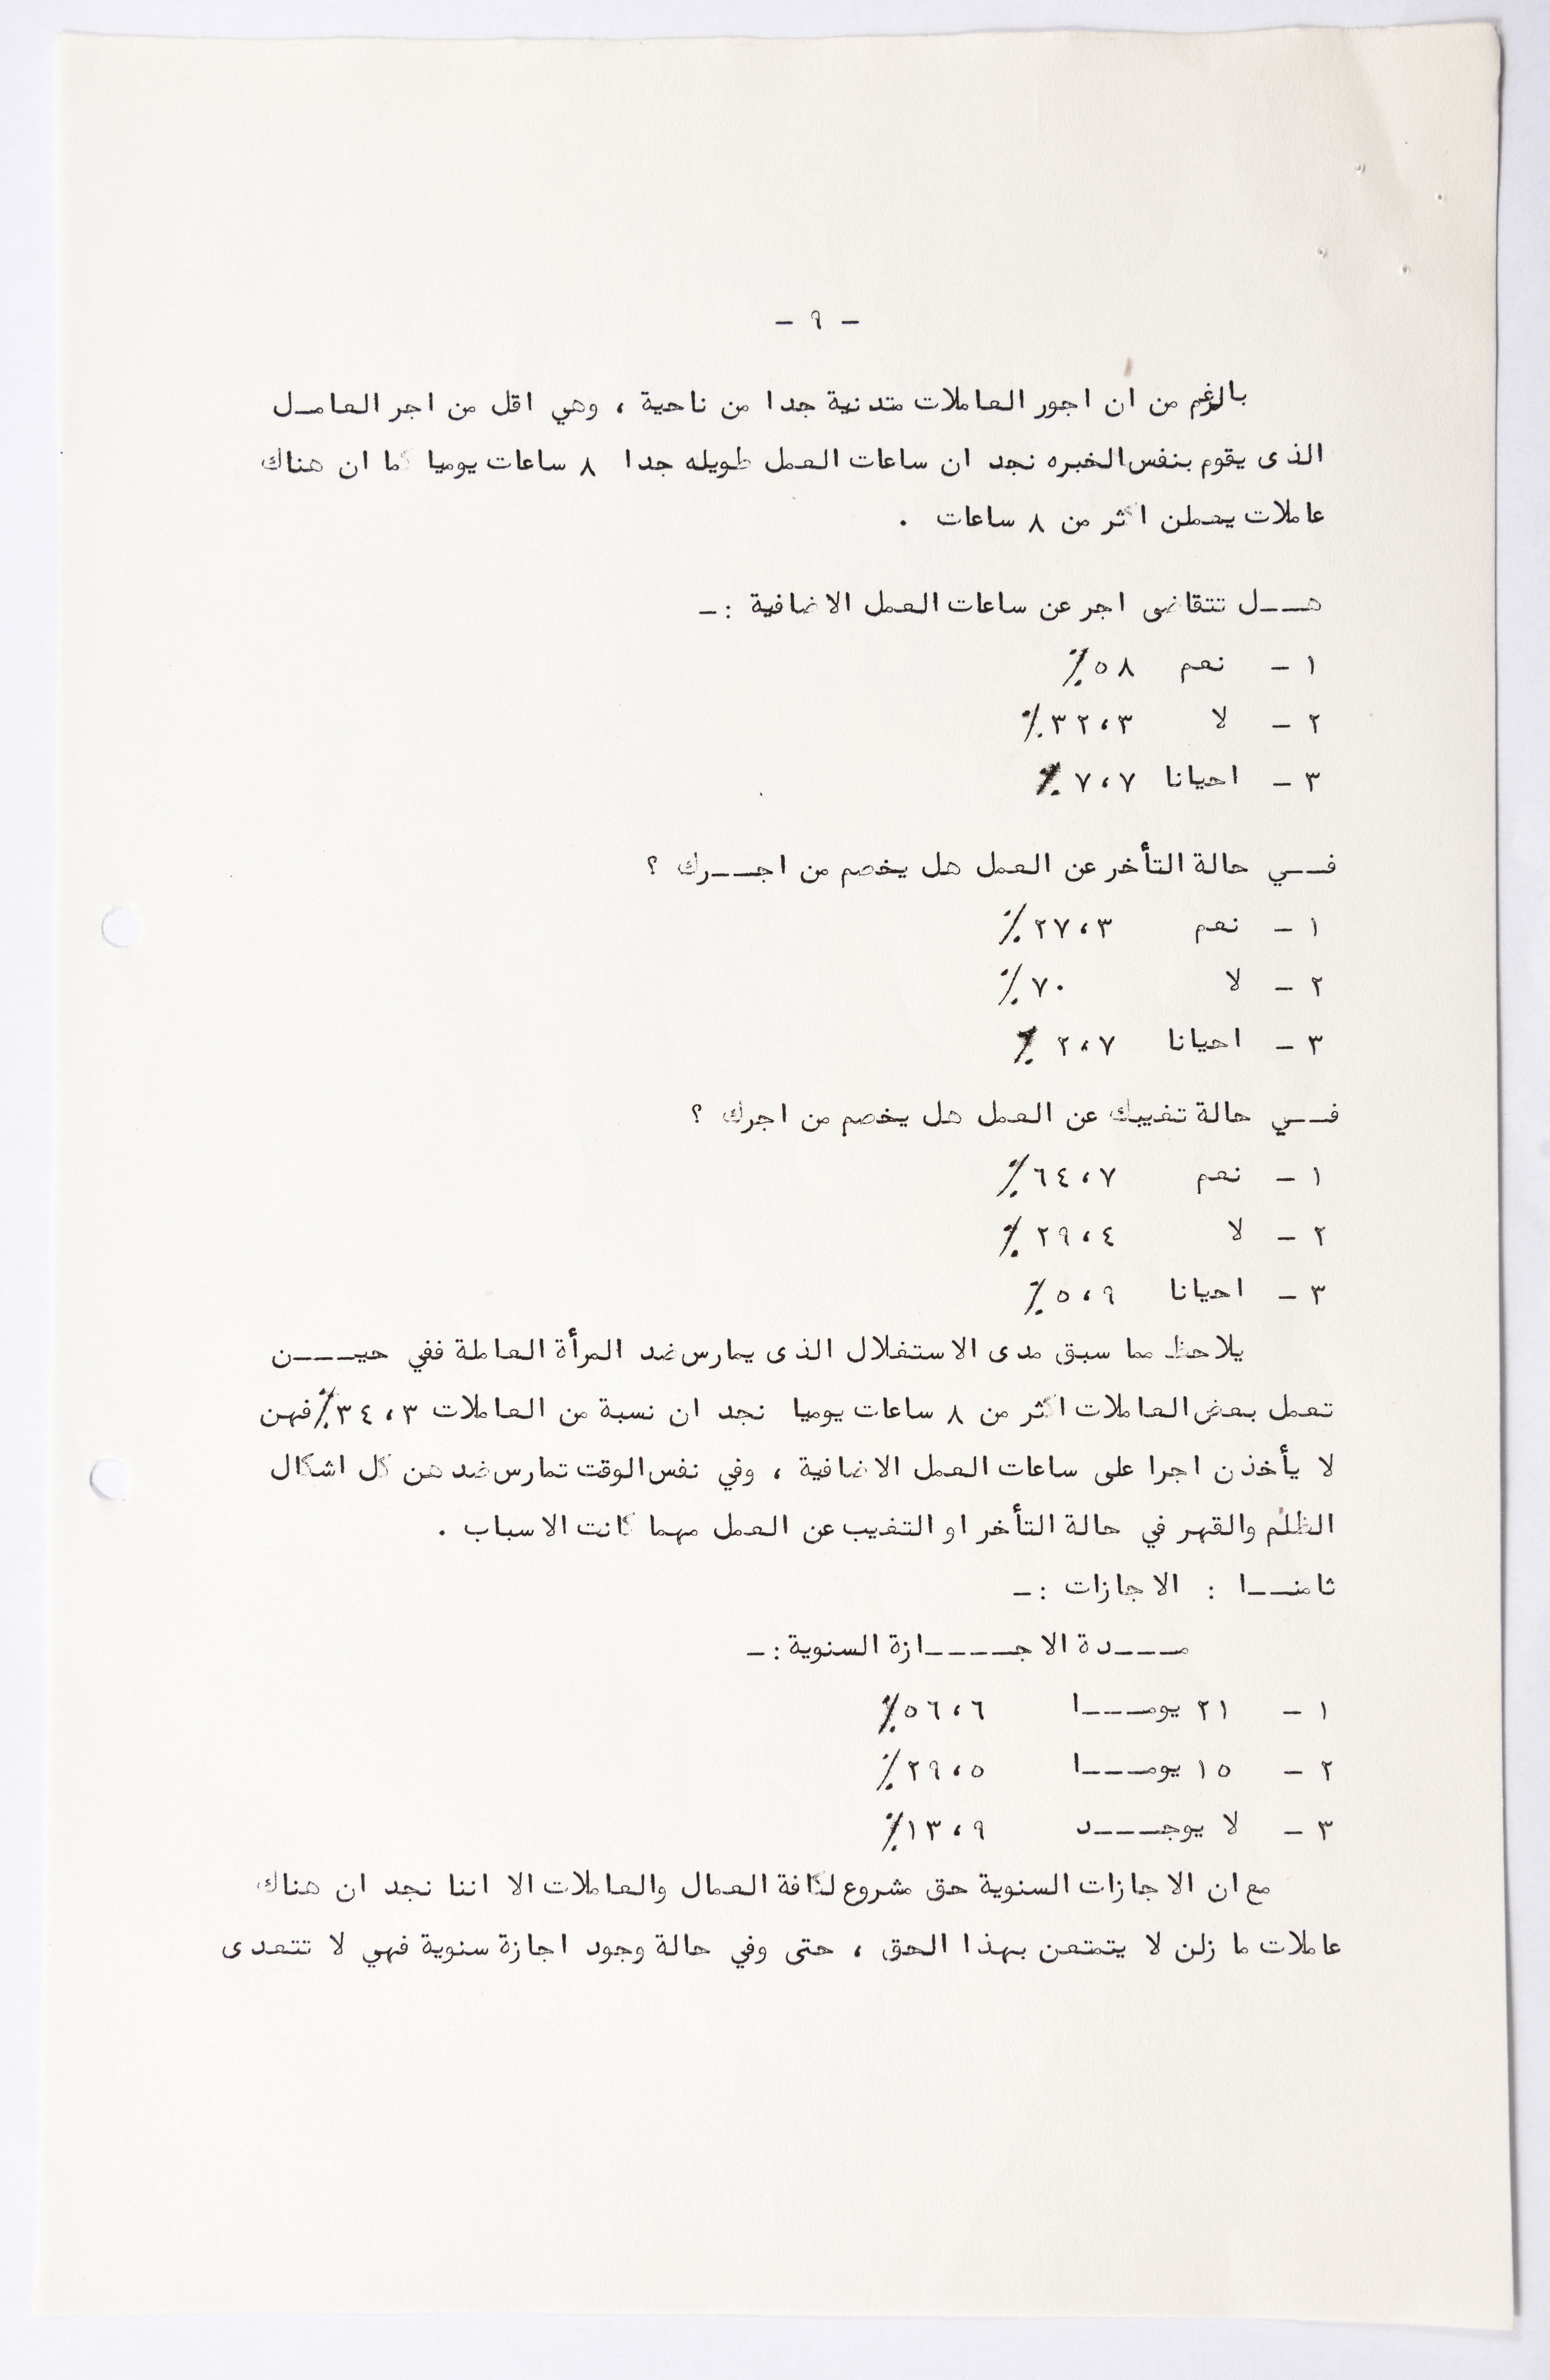 - ٩ -
بالرغم من ان اجور العاملات متدنية جدا من ناحية ، وهي اقل من اجر العامـل
الذى يقوم بنفس الخبره نجد ان ساعات العمل طويله جدا ٨ ساعات يوميا كما ان هناك
عاملات يعملن اكثر من ٨ ساعات .
هـــل تتقاضى اجر عن ساعات العمل الاضافية :ـ
١ - نعم ٥٨٪
٢ - لا ٣٢،٣٪
٣ - احيانا ٧،٧٪
فـــي حالة التأخر عن العمل هل يخصم من اجـــرك ؟
١ - نعم ٢٧،٣٪
٢ - لا ٧٠٪
٣ - احيانا ٢،٧٪
فـــي حالة تغيبك عن العمل هل يخصم من اجرك ؟
١ - نعم ٦٤،٧٪
٢ - لا ٢٩،٤٪
٣ - احيانا ٥،٩٪
يلاحظ مما سبق مدى الاستغلال الذى يمارس ضد المرأة العاملة ففي حيــــن
تعمل بعض العاملات اكثر من ٨ ساعات يوميا نجد ان نسبة من العاملات ٣٤،٣٪ فهن
لا يأخذن اجرا على ساعات العمل الاضافية ، وفي نفس الوقت تمارس ضد هن كل اشكال
الظلم والقهر في حالة التأخر او التغيب عن العمل مهما كانت الاسباب .
ثامنـــا : الاجازات :ـ
مــــدة الاجـــــازة السنوية :ـ
١ - ٢١ يومــــا ٥٦،٦٪
٢ - ١٥ يومــــا ٢٩،٥٪
٣ - لا يوجــــد ١٣،٩٪
مع ان الاجازات السنوية حق مشروع لكافة العمال والعاملات الا اننا نجد ان هناك
عاملات ما زلن لا يتمتعن بهذا الحق ، حتى وفي حالة وجود اجازة سنوية فهي لا تتعدى